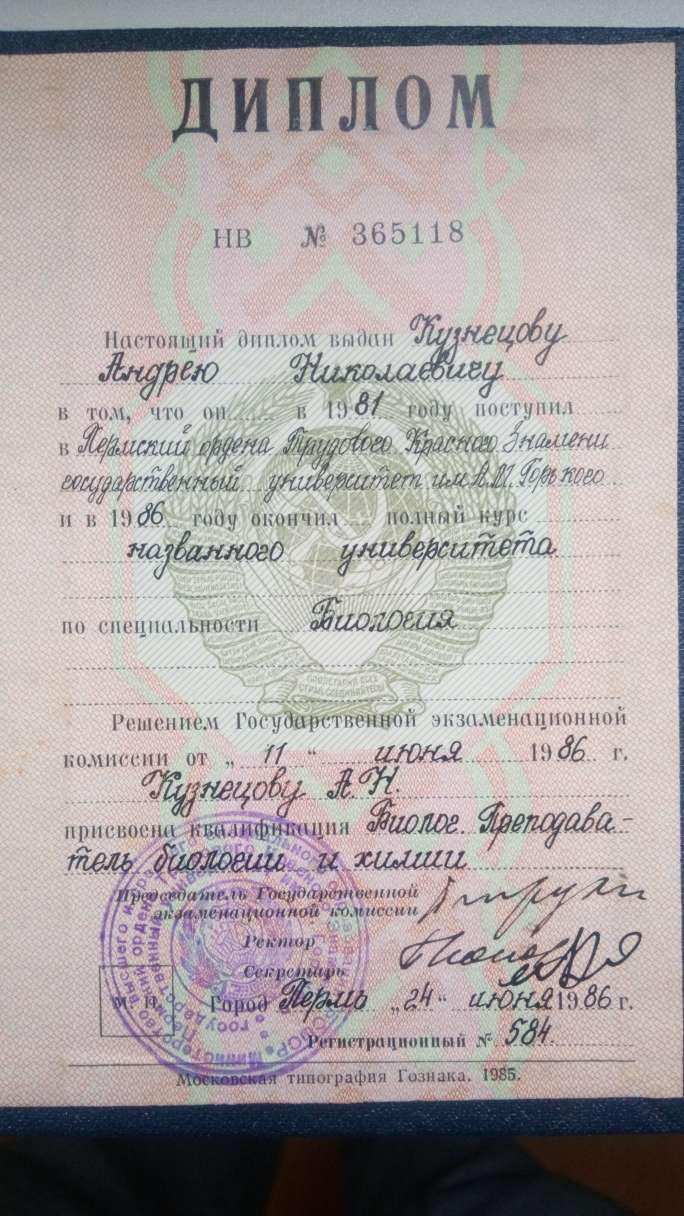 ДИПЛОМ
НВ № 365118
Настоящий диплом выдан Кузнецову
Андрею Николаевичу
в том, что он в 1981 году поступил
в Пермский ордена Трудового Красного Знамени
государственный университет им А.М. Горького
и в 1986 году окончил полный курс
названного университета
по специальности Биология
ПРОЛЕТАРИИ ВСЕХ
СТРАН, СОЕДИНЯЙТЕСЬ!
Решением Государственной экзаменационной
комиссии от „ 11 “ июня 1986 г.
Кузнецову А. Н.
присвоена квалификация Биолог. Преподава-
тель биологии и химии
Председатель Государственной
экзаменационной комиссии
Ректор
Секретарь
М. П. Город Пермь „24“ июня 1986 г.
Регистрационный № 584.
Московская типография Гознака. 1985.